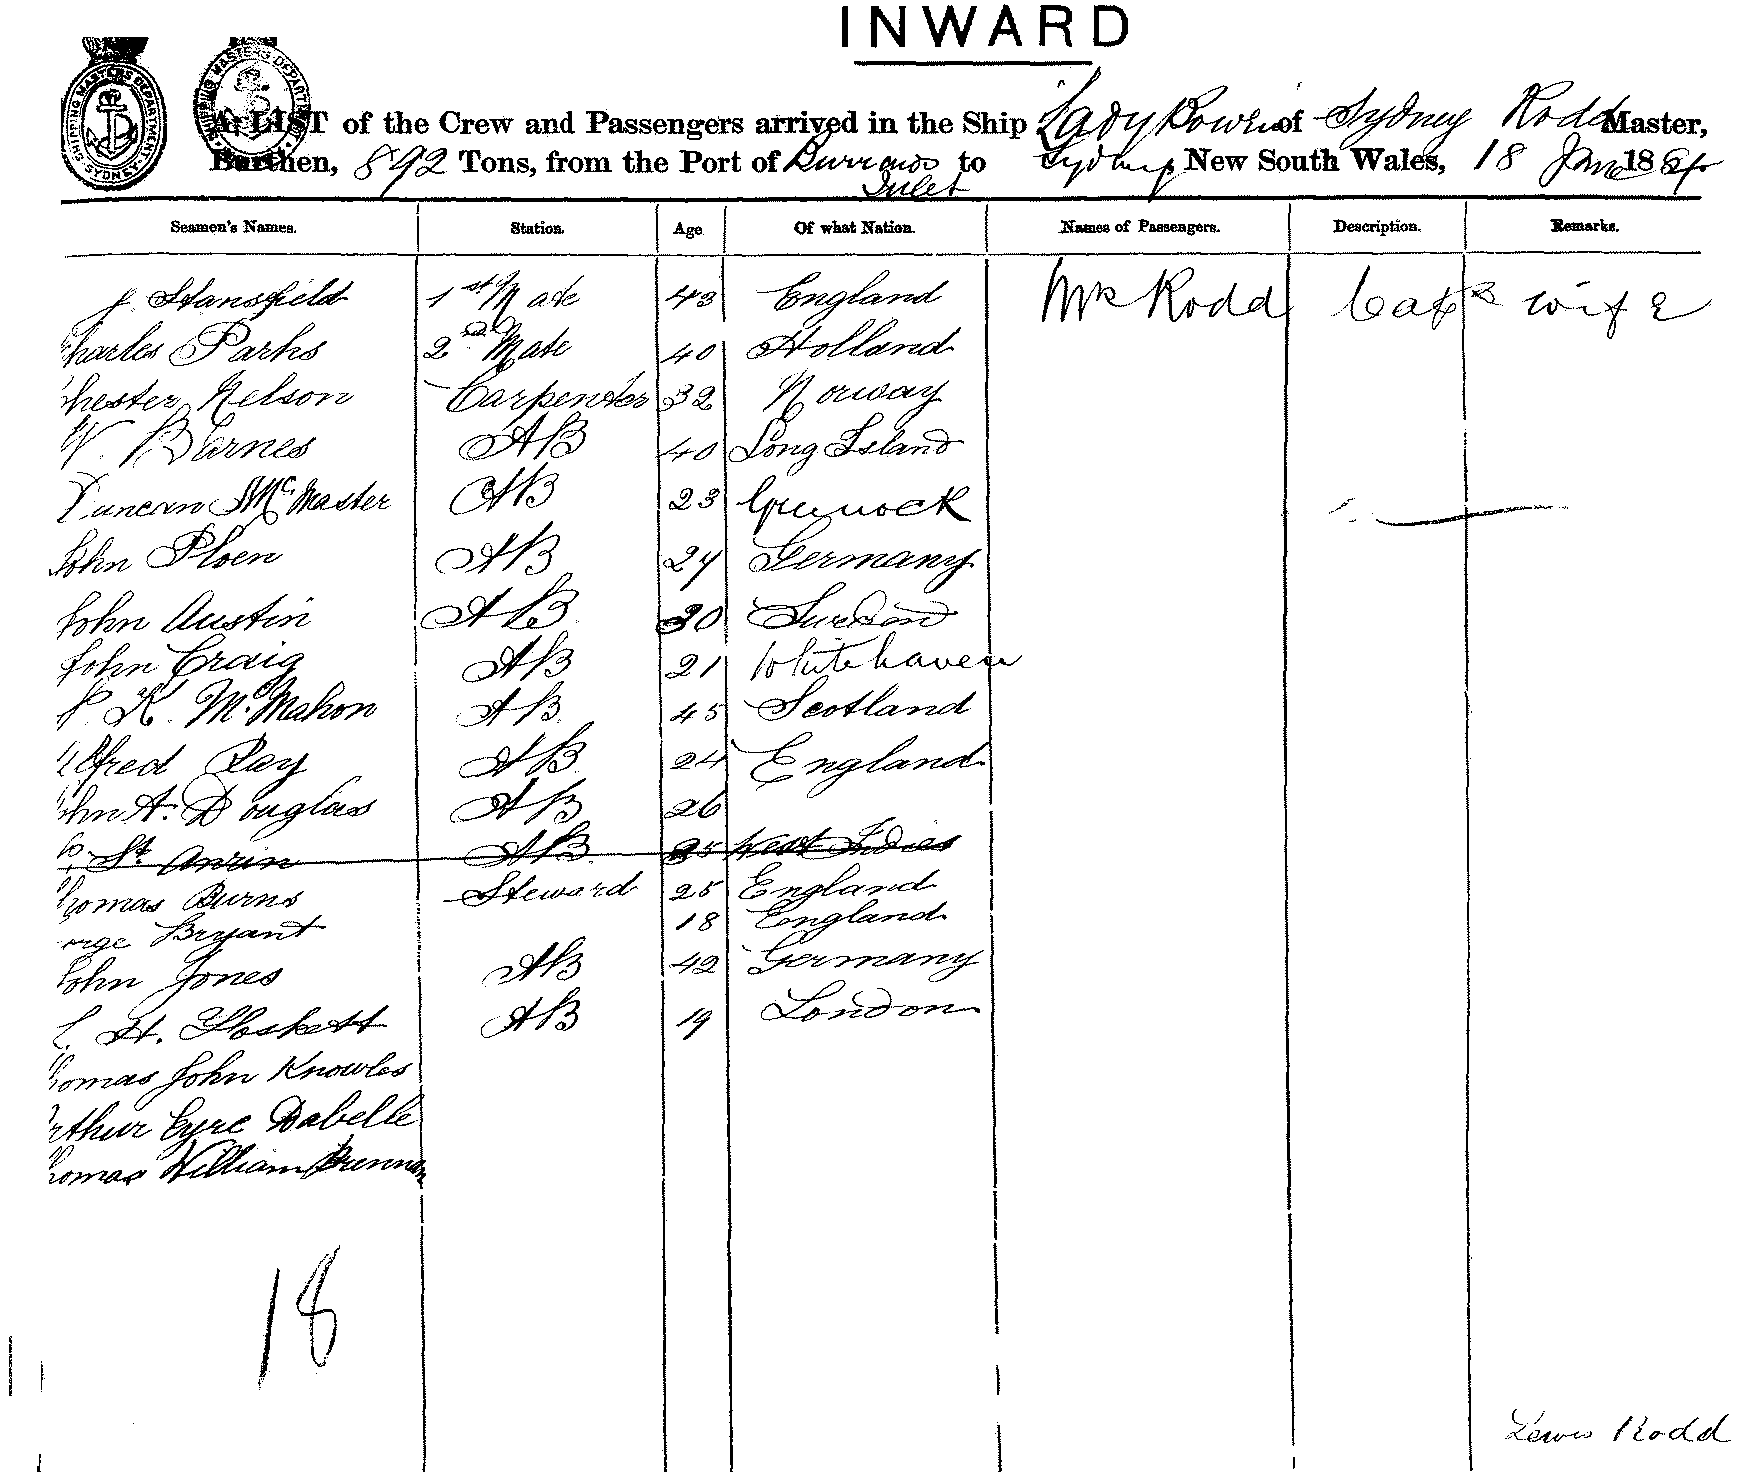 INWARD
SHIPPING MASTERS DEPARTMENT SYDNEY
A LIST of the Crew and Passengers arrived in the Ship Lady Bowen of Sydney Rodd Master,
Burthen, 892 Tons, from the Port of Burrows Inlet to Sydney, New South Wales, 18 June 18
Seamen's Names. Station. Age Of what Nation. Names of Passengers. Description. Remarks.
J. Stansfield 1st Mate 43 England Mrs Rodd Capts wife
Charles Parks 2nd Mate 40 Holland
Chester Nelson Carpenter 32 Norway
W. Barnes AB 40 Long Island
Duncan McMaster AB 23 Greenock
John Ploen AB 24 Germany
John Austin AB 30 Sweden
John Craig AB 21 Whitehaven
K. McMahon AB 45 Scotland
Alfred Ray AB 24 England
John A. Douglas AB 26
St AB 25 West Indies
Thomas Burns Steward 25 England
orge Bryant 18 England
John Jones AB 42 Germany
H. Hoskett AB 19 London
Thomas John Knowles
Arthur Eyre Dabelle
Thomas William Brennan
18
Lewis Rodd